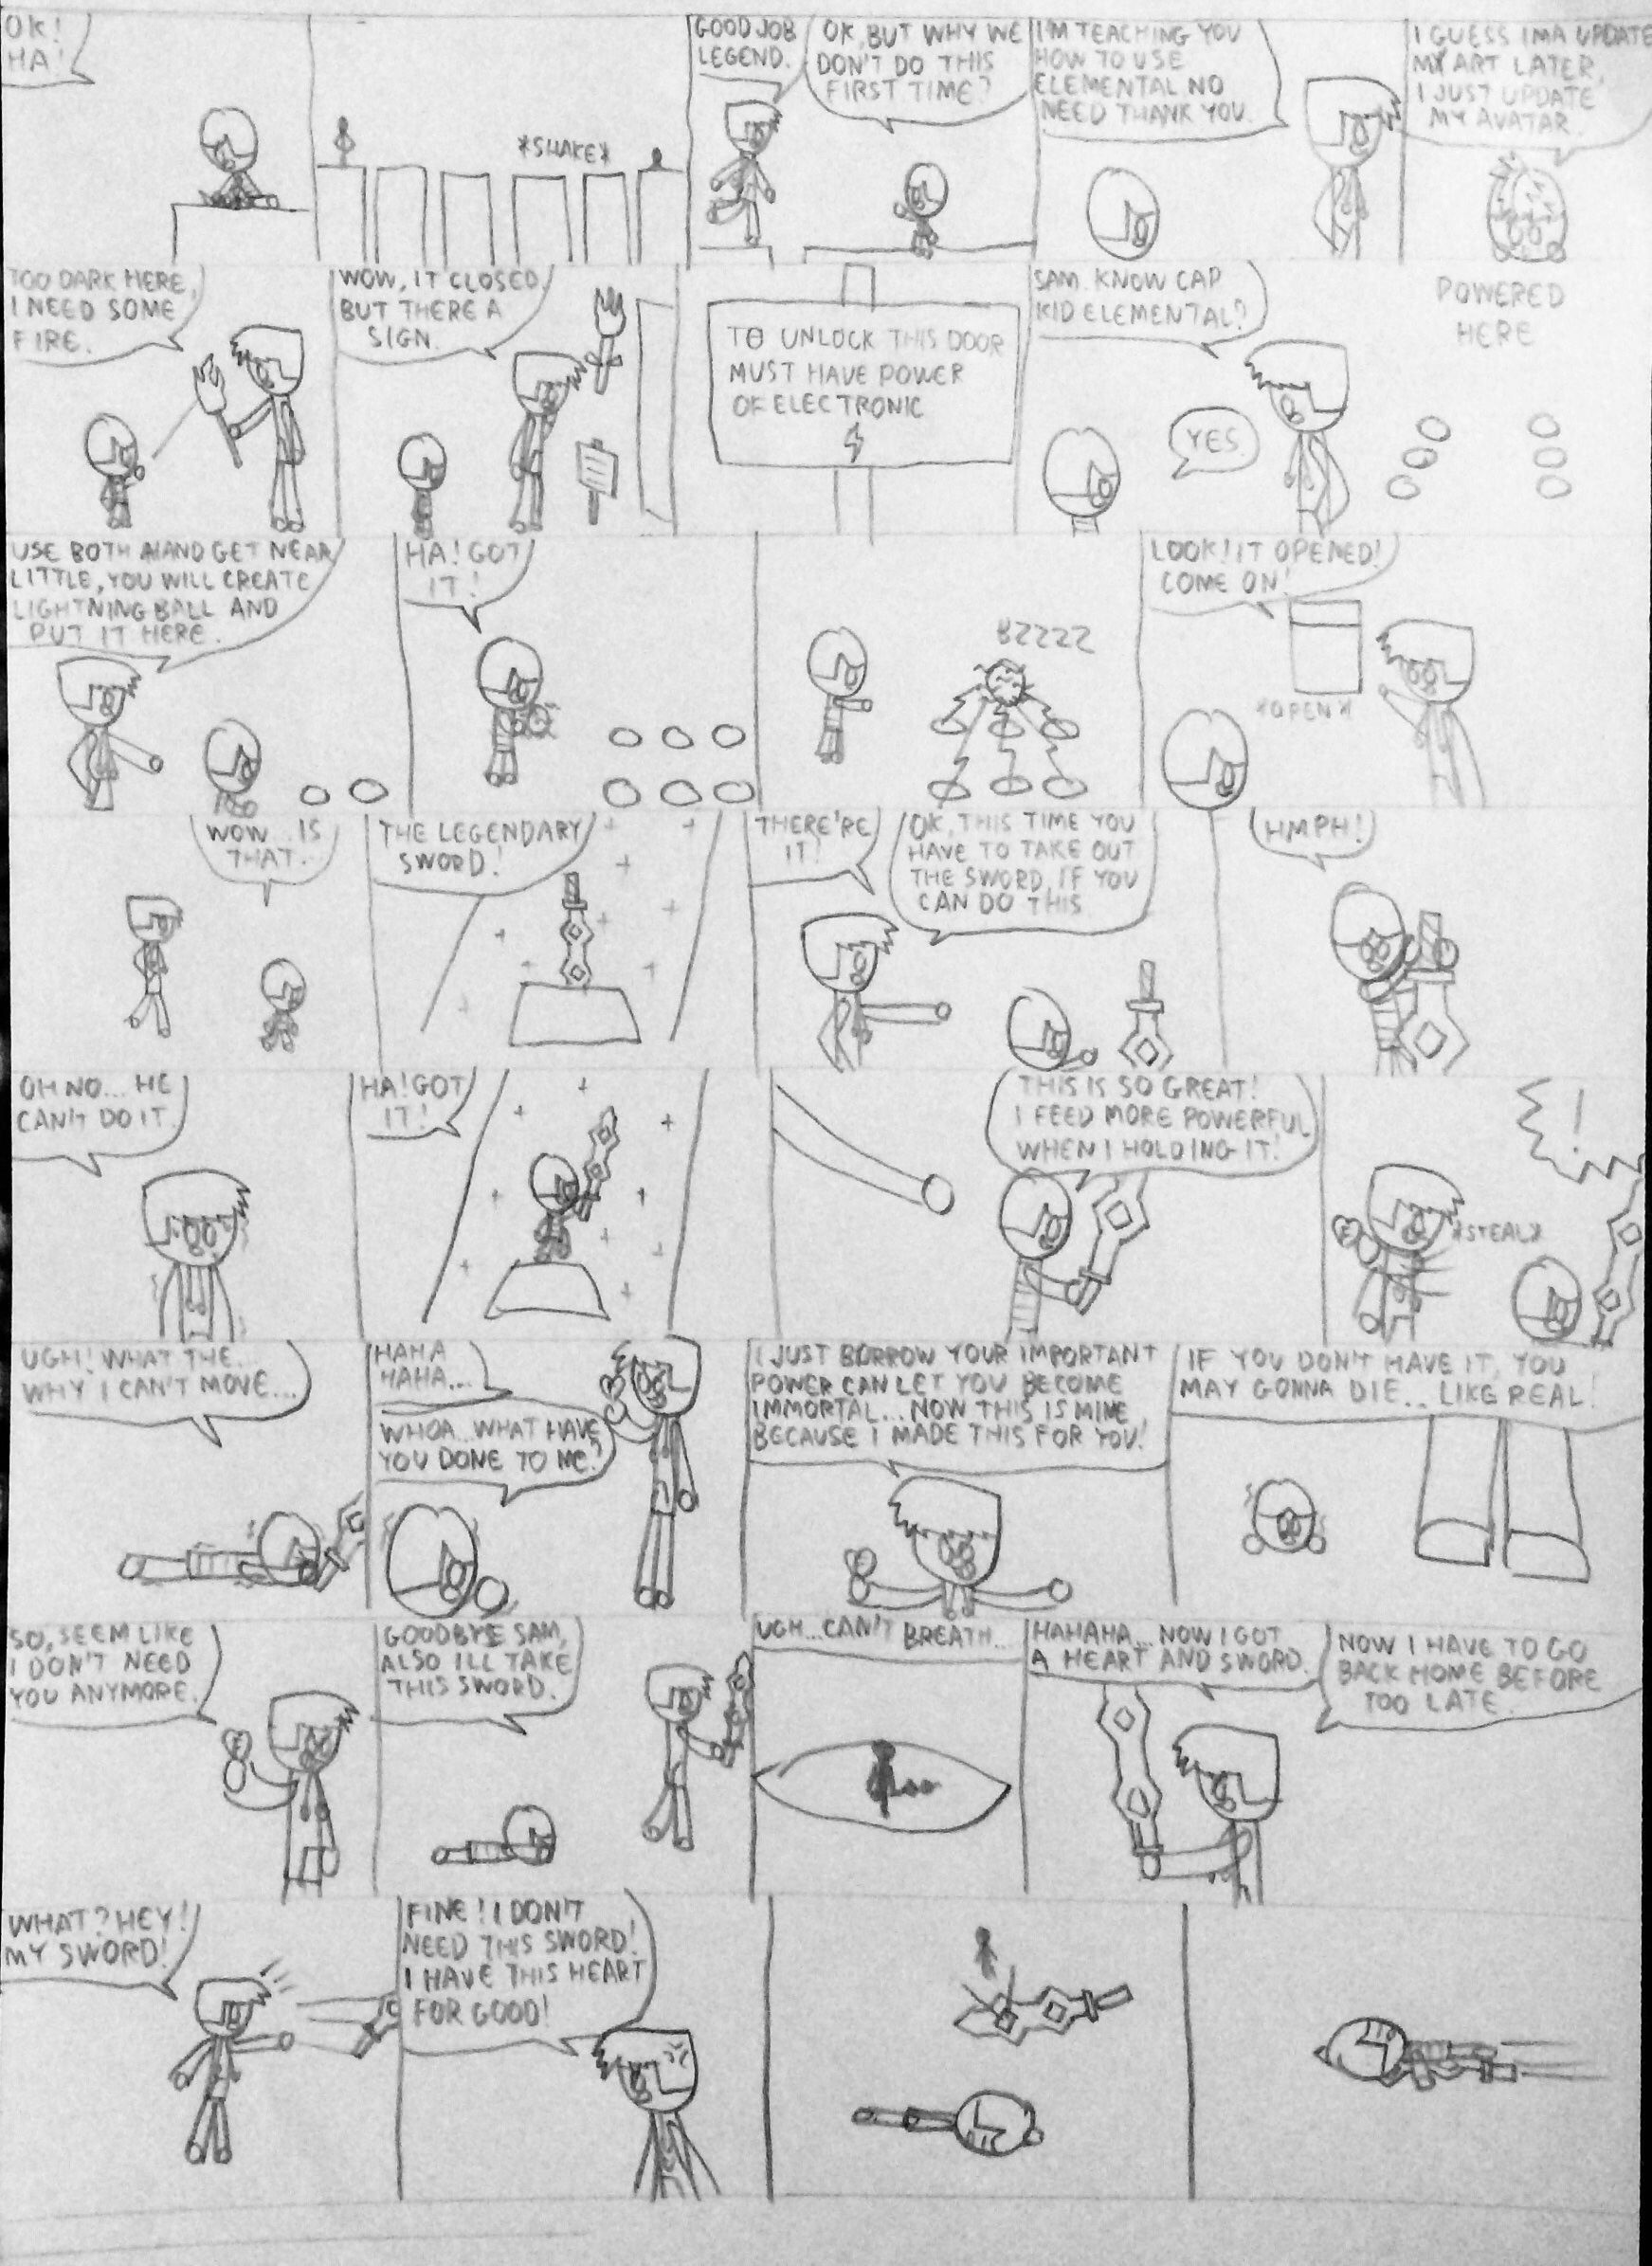 OK!
HA!
*SHAKE*
GOOD JOB
LEGEND.
OK, BUT WHY WE
DON'T DO THIS
FIRST TIME?
I'M TEACHING YOU
HOW TO USE
ELEMENTAL. NO
NEED THANK YOU.
I GUESS IMA UPDATE
MY ART LATER,
I JUST UPDATE
MY AVATAR.
TOO DARK HERE,
I NEED SOME
FIRE.
WOW, IT CLOSED,
BUT THERE A
SIGN.
TO UNLOCK THIS DOOR
MUST HAVE POWER
OF ELECTRONIC
SAM. KNOW CAP
KID ELEMENTAL?
YES.
POWERED
HERE
USE BOTH HAND GET NEAR
LITTLE, YOU WILL CREATE
LIGHTNING BALL AND
PUT IT HERE.
HA! GOT
IT!
BZZZZ
LOOK! IT OPENED!
COME ON!
*OPEN*
WOW... IS
THAT...
THE LEGENDARY
SWORD!
THERE'RE
IT!
OK, THIS TIME YOU
HAVE TO TAKE OUT
THE SWORD, IF YOU
CAN DO THIS
HMPH!
OH NO... HE
CAN'T DO IT.
HA! GOT
IT!
THIS IS SO GREAT!
I FEED MORE POWERFUL
WHEN I HOLDING IT!
!
*STEAL*
UGH! WHAT THE...
WHY I CAN'T MOVE...
HAHA
HAHA...
WHOA...WHAT HAVE
YOU DONE TO ME?
I JUST BORROW YOUR IMPORTANT
POWER CAN LET YOU BECOME
IMMORTAL... NOW THIS IS MINE,
BECAUSE I MADE THIS FOR YOU!
IF YOU DON'T HAVE IT, YOU
MAY GONNA DIE... LIKE REAL!
SO, SEEM LIKE
I DON'T NEED
YOU ANYMORE.
GOODBYE SAM,
ALSO ILL TAKE
THIS SWORD.
UGH...CAN'T BREATH...
HAHAHA... NOW I GOT
A HEART AND SWORD.
NOW I HAVE TO GO
BACK HOME BEFORE
TOO LATE.
WHAT? HEY!
MY SWORD!
FINE! I DON'T
NEED THIS SWORD!
I HAVE THIS HEART
FOR GOOD!